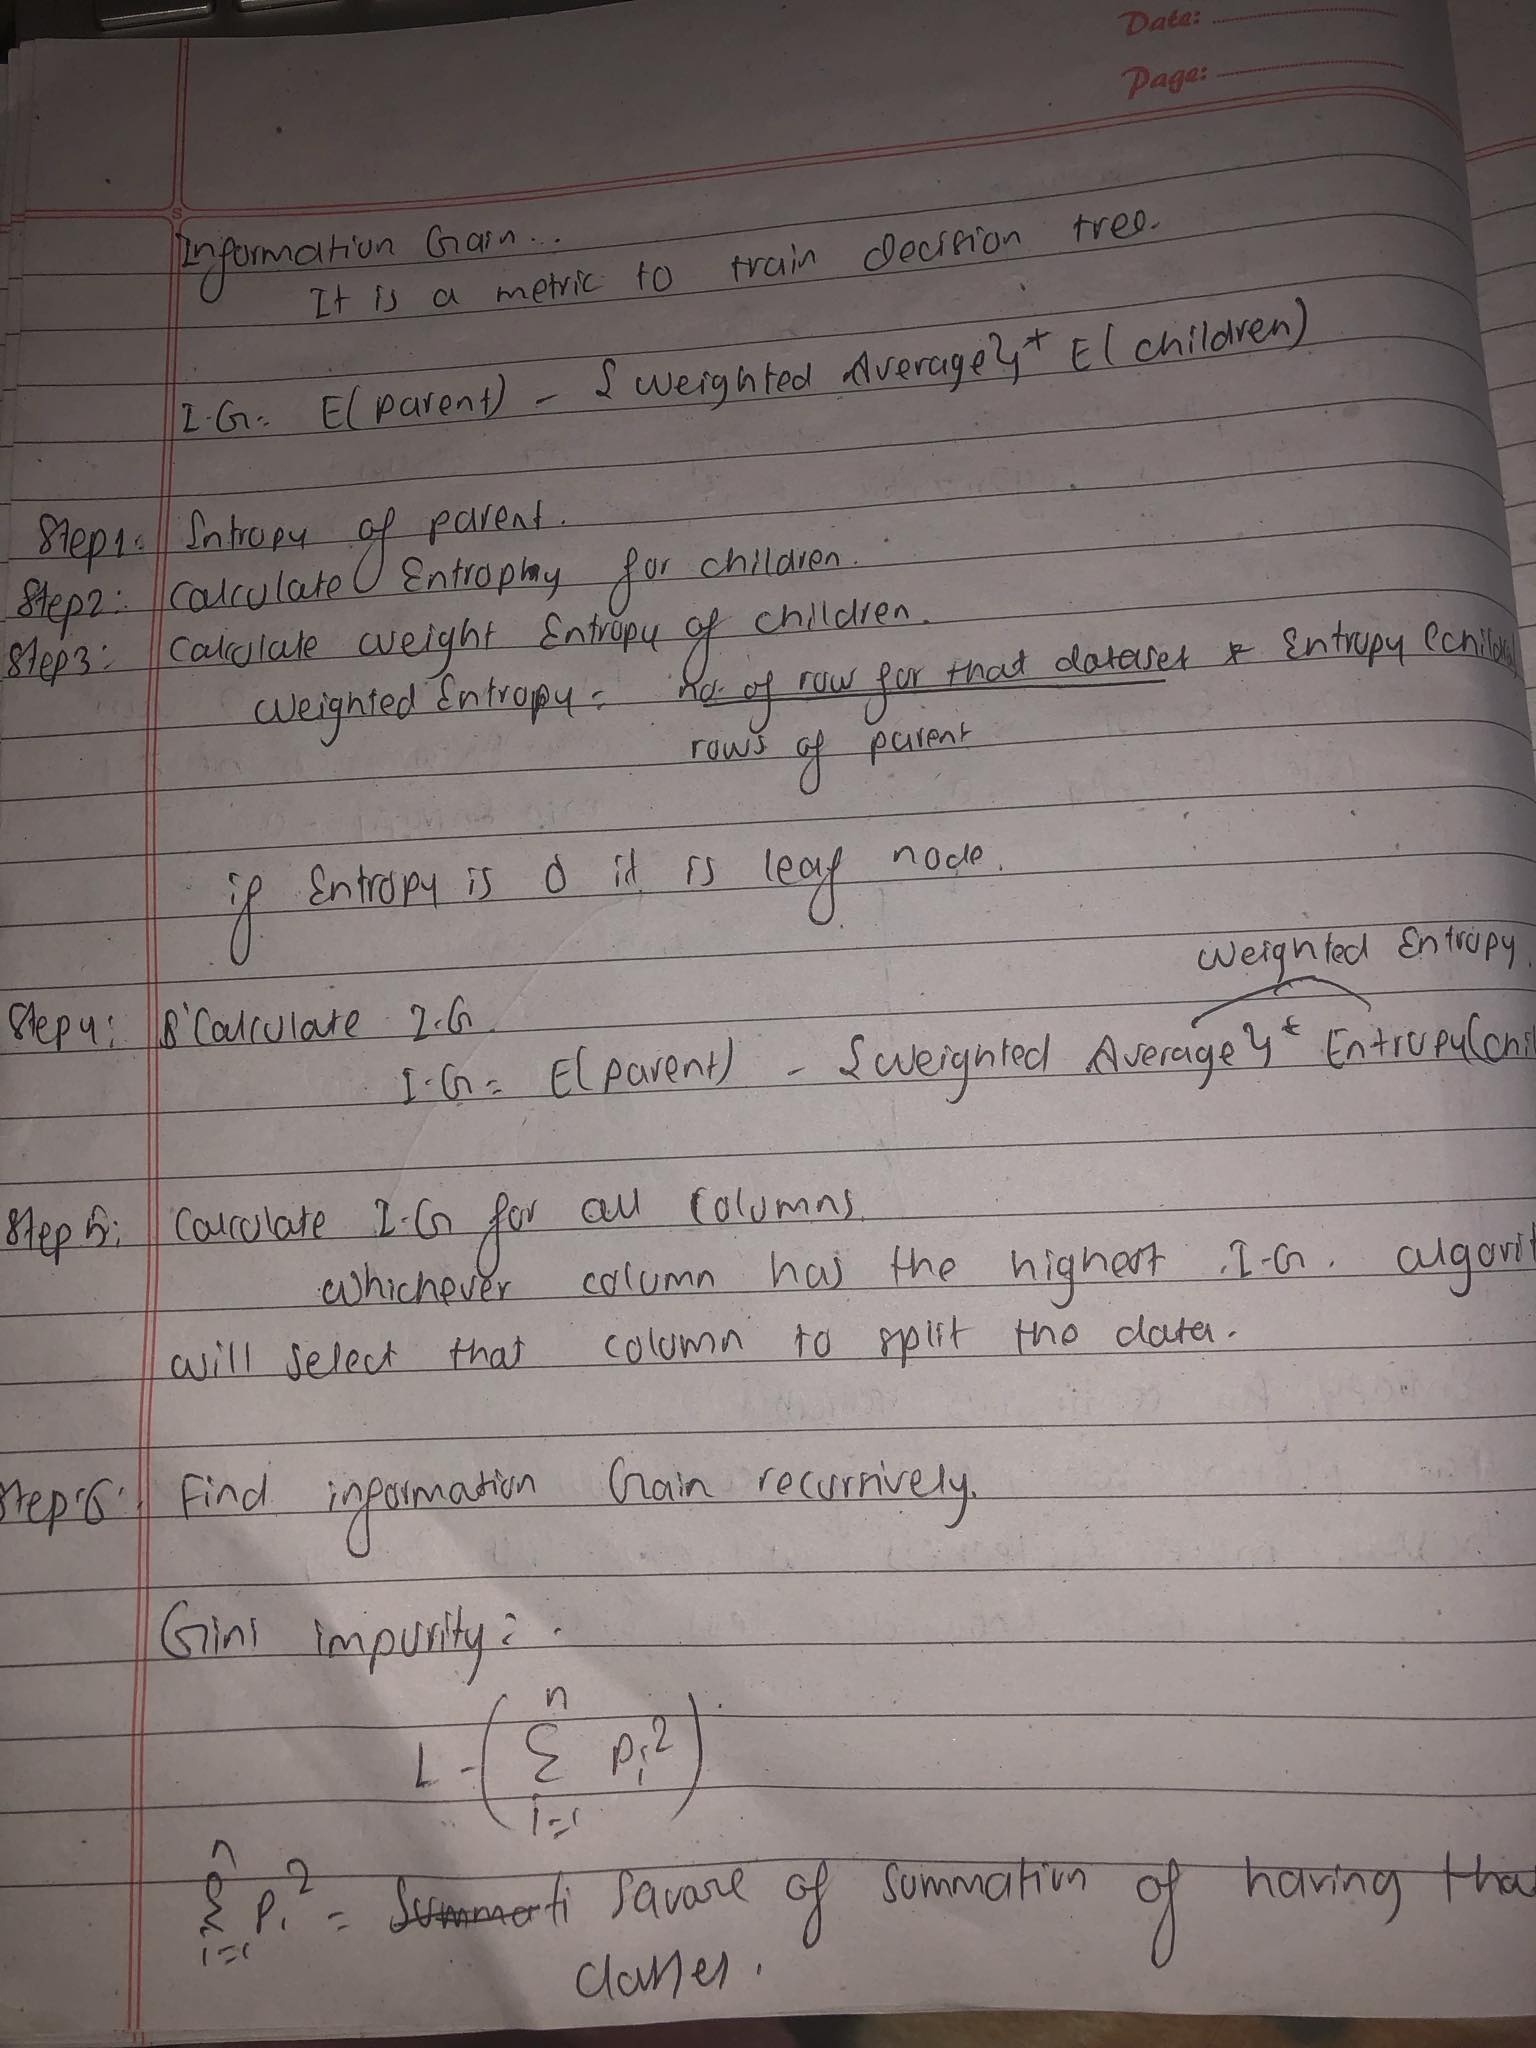 Date:
Page:
Information Gain...
It is a metric to train decision tree.
I.G = E(parent) - {weighted Average} * E(children)
Step1: Entropy of parent.
Step2: Calculate Entrophy for children.
Step3: Calculate weight Entropy of children.
weighted Entropy = no. of row for that dataset * Entropy (child
rows of parent
if Entropy is 0 it is leaf node.
weighted Entropy.
Step4: Calculate I.G.
I.G = E(parent) - {weighted Average} * Entropy(chi
Step 5: Calculate I.G for all columns.
whichever column has the highest I.G. algorit
will select that column to split the data.
Step 6: Find information Gain recursively.
Gini impurity:
1 - (∑ⁿᵢ₌₁ Pᵢ²)
∑ⁿᵢ₌₁ Pᵢ² = Square of summation of having tha
classes.